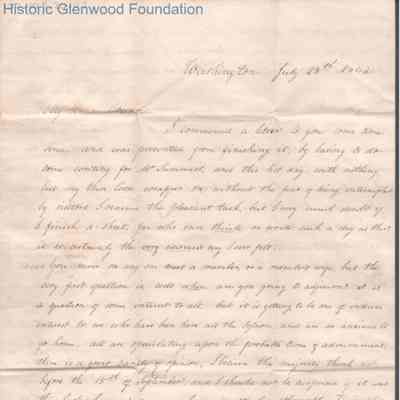 Historic Glenwood Foundation
Washington July 28th 1842
My Dear
I commenced a letter to you some time
since and was prevented from finishing it, by having to do
some writing for Mr Summers, and this hot day with nothing
but my thin loose wrapper on without the fear of being interrupted
by visitors I resume the pleasant task, but I very much doubt if
I finish a sheet, for who can think or work such a day as this
it is certainly the very warmest day I ever felt.
you move on any one meet a member or a members wife but the
very first question is well when are you going to adjourn? it is
a question of some interest to all but it is getting to be one of
interest to we who have been here all the Session and are so anxious to
go home. all are speculating upon the probable time of adjournment
there is a great variety of opinion, I believe the majority think not
before the 15th of September and I should not be surprised if it was